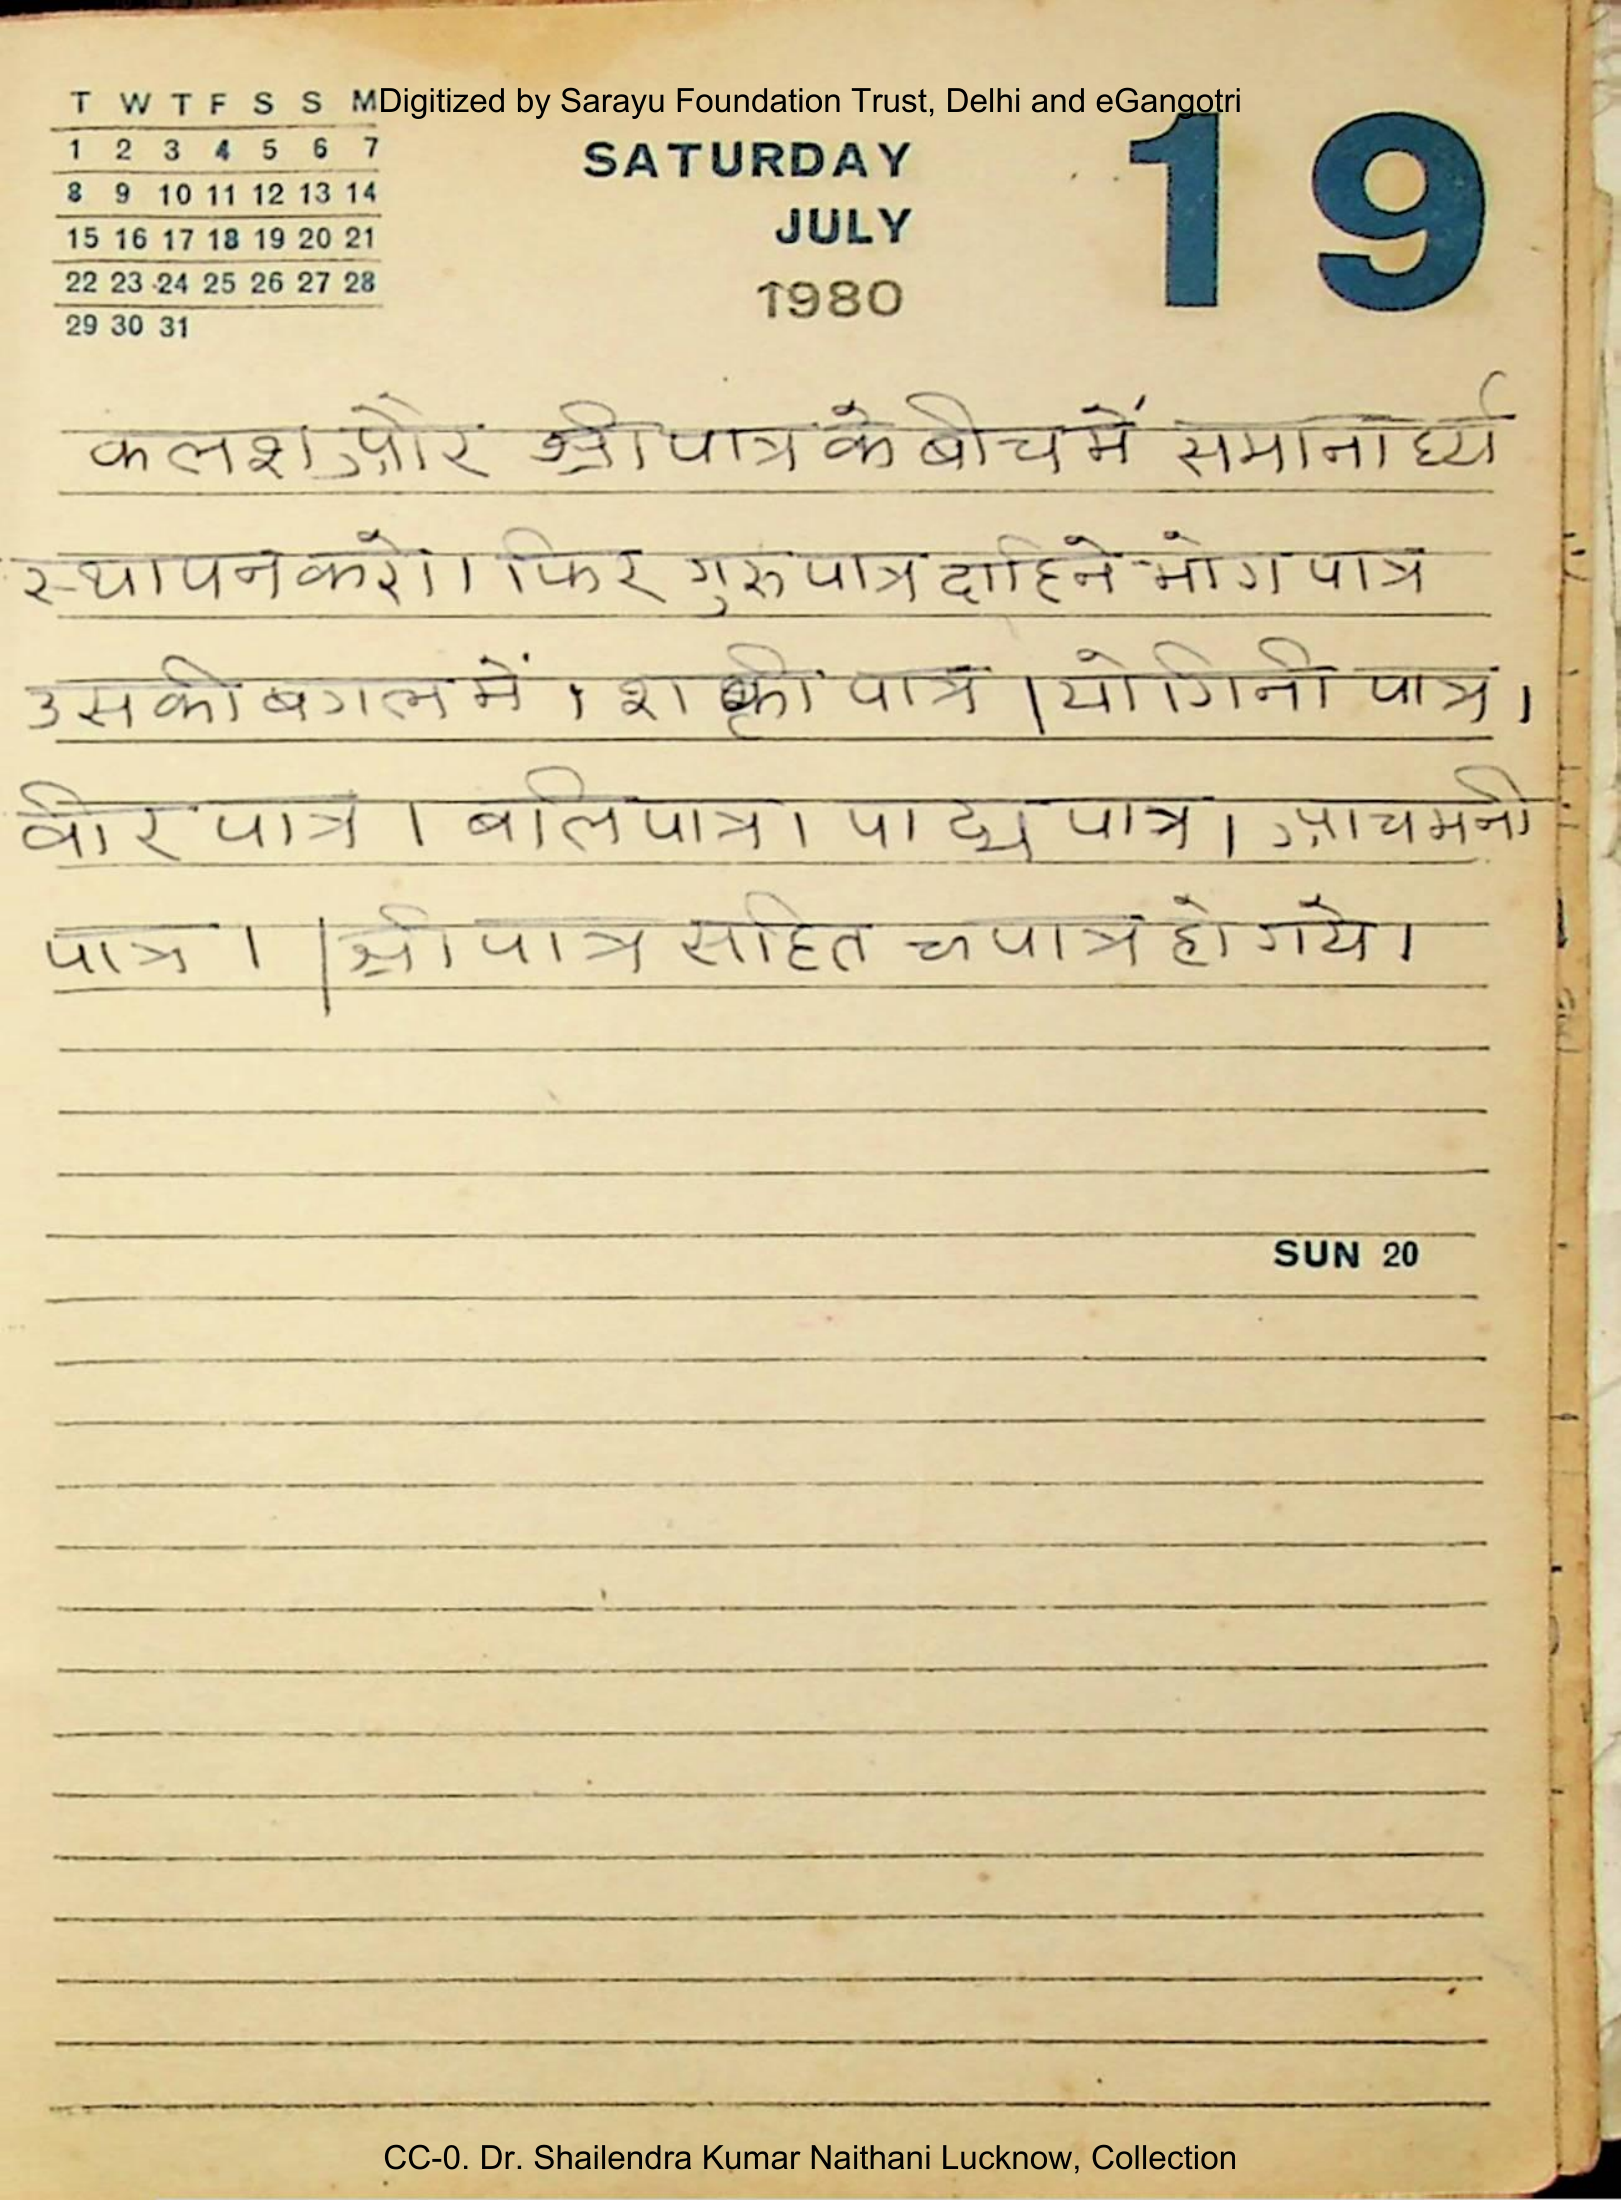 Digitized by Sarayu Foundation Trust, Delhi and eGangotri
T W T F S S M
1 2 3 4 5 6 7
8 9 10 11 12 13 14
15 16 17 18 19 20 21
22 23 24 25 26 27 28
29 30 31
SATURDAY
JULY
1980
19
कलश और श्री पात्र के बीच में समानार्घ्य
स्थापन करो। फिर गुरु पात्र दाहिने भोग पात्र
उसकी बगल में । शक्ती पात्र । योगिनी पात्र ।
वीर पात्र । बलि पात्र । पाद्य पात्र । आचमनी
पात्र । । श्री पात्र सहित पात्र हो गये ।
SUN 20
CC-0. Dr. Shailendra Kumar Naithani Lucknow, Collection